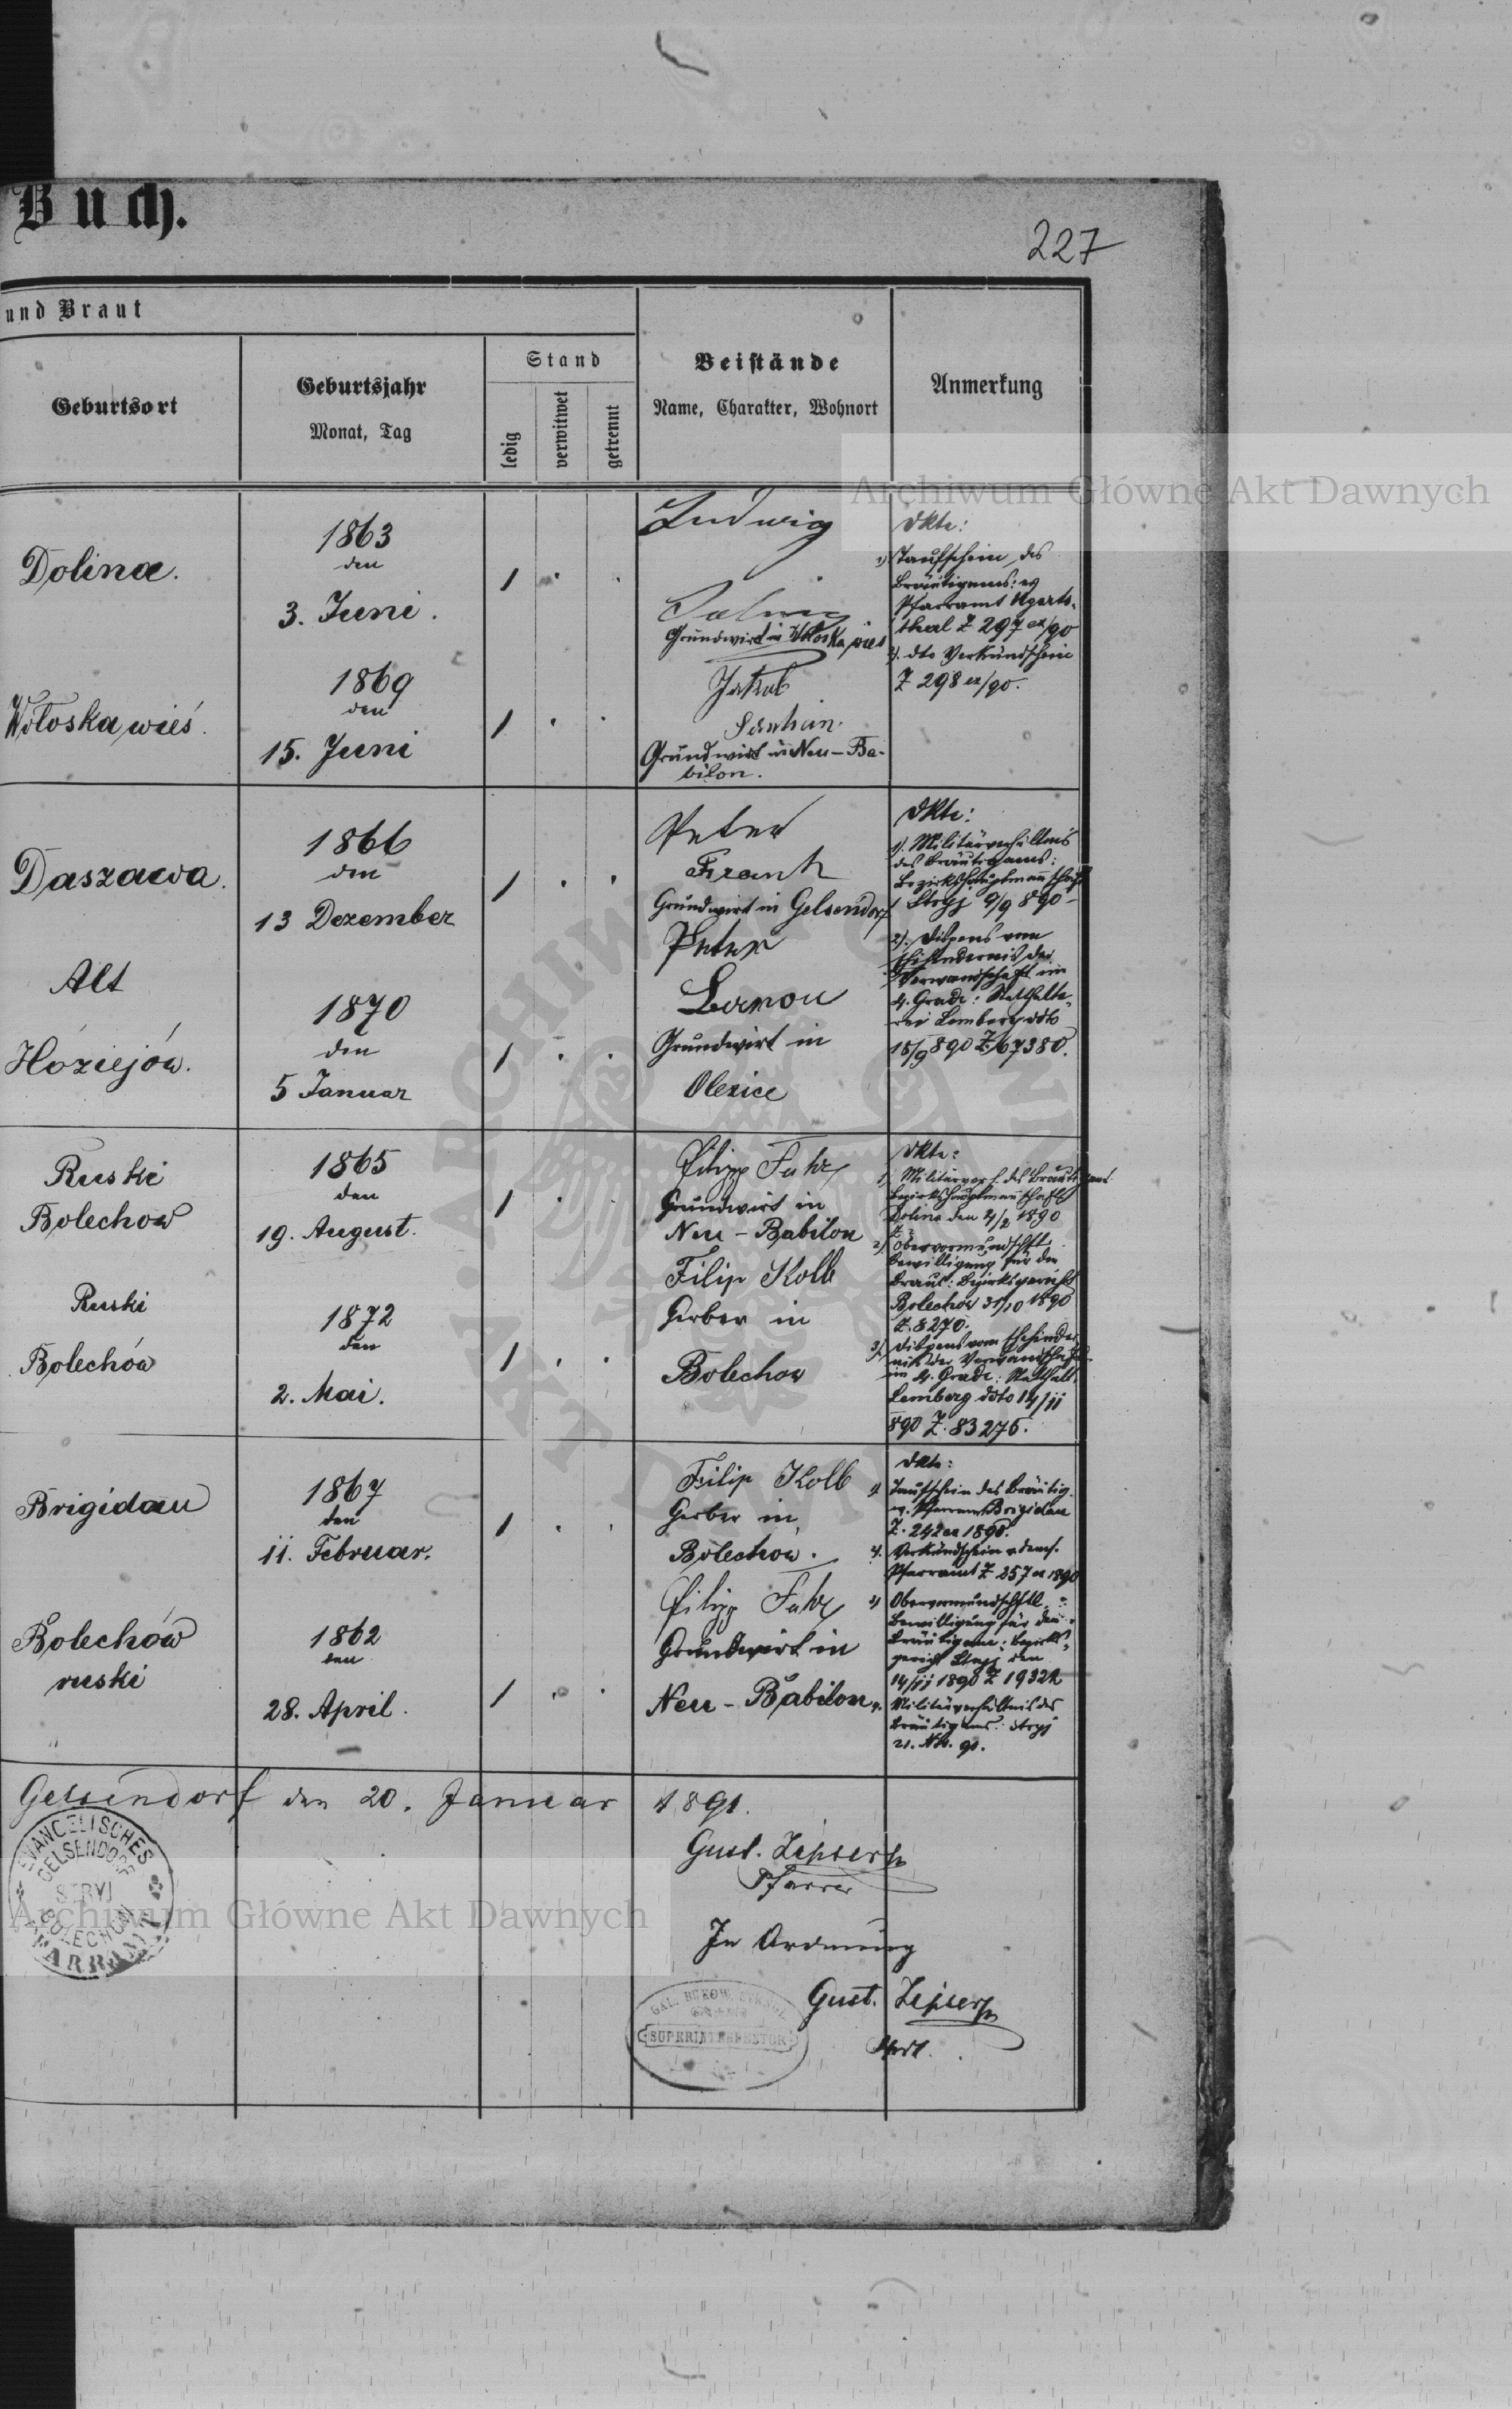 Buch.
227
und Braut
Geburtsort
Geburtsjahr
Monat, Tag
Stand
ledig
verwitwet
getrennt
Beistände
Name, Charakter, Wohnort
Anmerkung
Archiwum Główne Akt Dawnych
Dolina.
1863
den
3. Juni.
Ludwig
Grundwirt in Wołoska wieś
Dkte:
1) Taufschein des
Bräutigams: ex
Pfarramt Ugarts-
thal Z 297 ex/90
2). dto Verkündschein
Z 298 ex/90.
Wołoska wieś.
1869
den
15. Juni
Jakob
Grundwirt in Neu-Ba-
bilon.
Daszawa.
1866
den
13 Dezember
Peter
Frank
Grundwirt in Gelsendorf
Dkte:
1). Militärverhältnis
des Bräutigams:
Bezirkshauptmannschaft
Stryj 9/9 890
2). Dispens vom
Ehehindernis der
Verwandschaft im
4. Grade: Statthalte-
rei Lemberg ddto
18/9 890 Z 67380.
Alt
Hoziejów.
1870
den
5 Januar
Peter
Grundwirt in
Olexice
Ruski
Bolechow
1865
den
19. August.
Filipp Fuhr
Grundwirt in
Neu-Babilon
Dkte:
1) Militärverh. des Bräutigams
Bezirkshauptmannschaft
Dolina den 4/2 1890
2) Obervormundschftl.
Bewilligung für die
Braut: Bezirksgericht
Bolechów 31/10 1890
Z. 8270.
3) Dispens vom Ehehinder
nis der Verwandschaft
im 4. Grade: Statthalt.
Lemberg ddto 14/11
890 Z. 83275.
Ruski
Bolechów
1872
den
2. Mai.
Filip Kolb
Gerber in
Bolechow
Brigidau
1867
den
11. Februar.
Filip Kolb
Gerber in
Bolechów.
Dkte:
Taufschein des Bräutig.
v. Pfarramt Brigidau
Z. 242 ex 1890.
Verkündschein v. dems.
Pfarramt Z 257 ex 1890
Obervormundschftl.
Bewilligung für den
Bräutigam: Bezirks-
gericht Stryj den
14/11 1890 Z 19322
Militärverhältnis des
Bräutigams: Stryj
21. Nov. 90.
Bolechów
ruski
1862
den
28. April.
Filipp Fuhr
Grundwirt in
Neu-Babilon
Gelsendorf den 20. Januar 1891.
Gust. Zipser
Pfarrer
EVANGELISCHES
GELSENDORF
STRYJ
BOLECHOW
PFARRAMT
Archiwum Główne Akt Dawnych
In Ordnung
Gust. Zipser
GAL. BUKOW.
SUPERINTENDENTUR